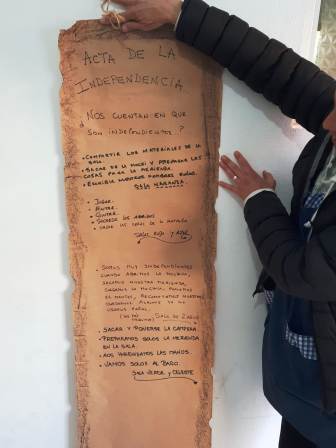 ACTA DE LA
INDEPENDENCIA
¿NOS CUENTAN EN QUE
SON INDEPENDIENTES?
• COMPARTIR LOS MATERIALES DE LA
SALA.
• SACAR DE LA MOCHI Y PREPARAR LAS
COSAS PARA LA MERIENDA
• ESCRIBIR NUESTROS NOMBRES SOLOS.
SALA NARANJA.
• JUGAR.
• PINTAR.
• CANTAR.
• SACARSE LOS ABRIGOS
• SACAR LAS COSAS DE LA MOCHILA
SALAS ROJA Y AZUL
SOMOS MUY INDEPENDIENTES
CUANDO ABRIMOS LA MOCHILA,
SACAMOS NUESTRA MERIENDA,
LA MOCHILA, PONEMOS
EL MANTEL, NUESTROS
SALA DE 2 AÑOS
• SACAR Y PONERSE LA CAMPERA
• PREPARAMOS SOLOS LA MERIENDA
EN LA SALA.
• LAS MANOS.
• VAMOS SOLOS AL BAÑO.
SALA VERDE Y CELESTE